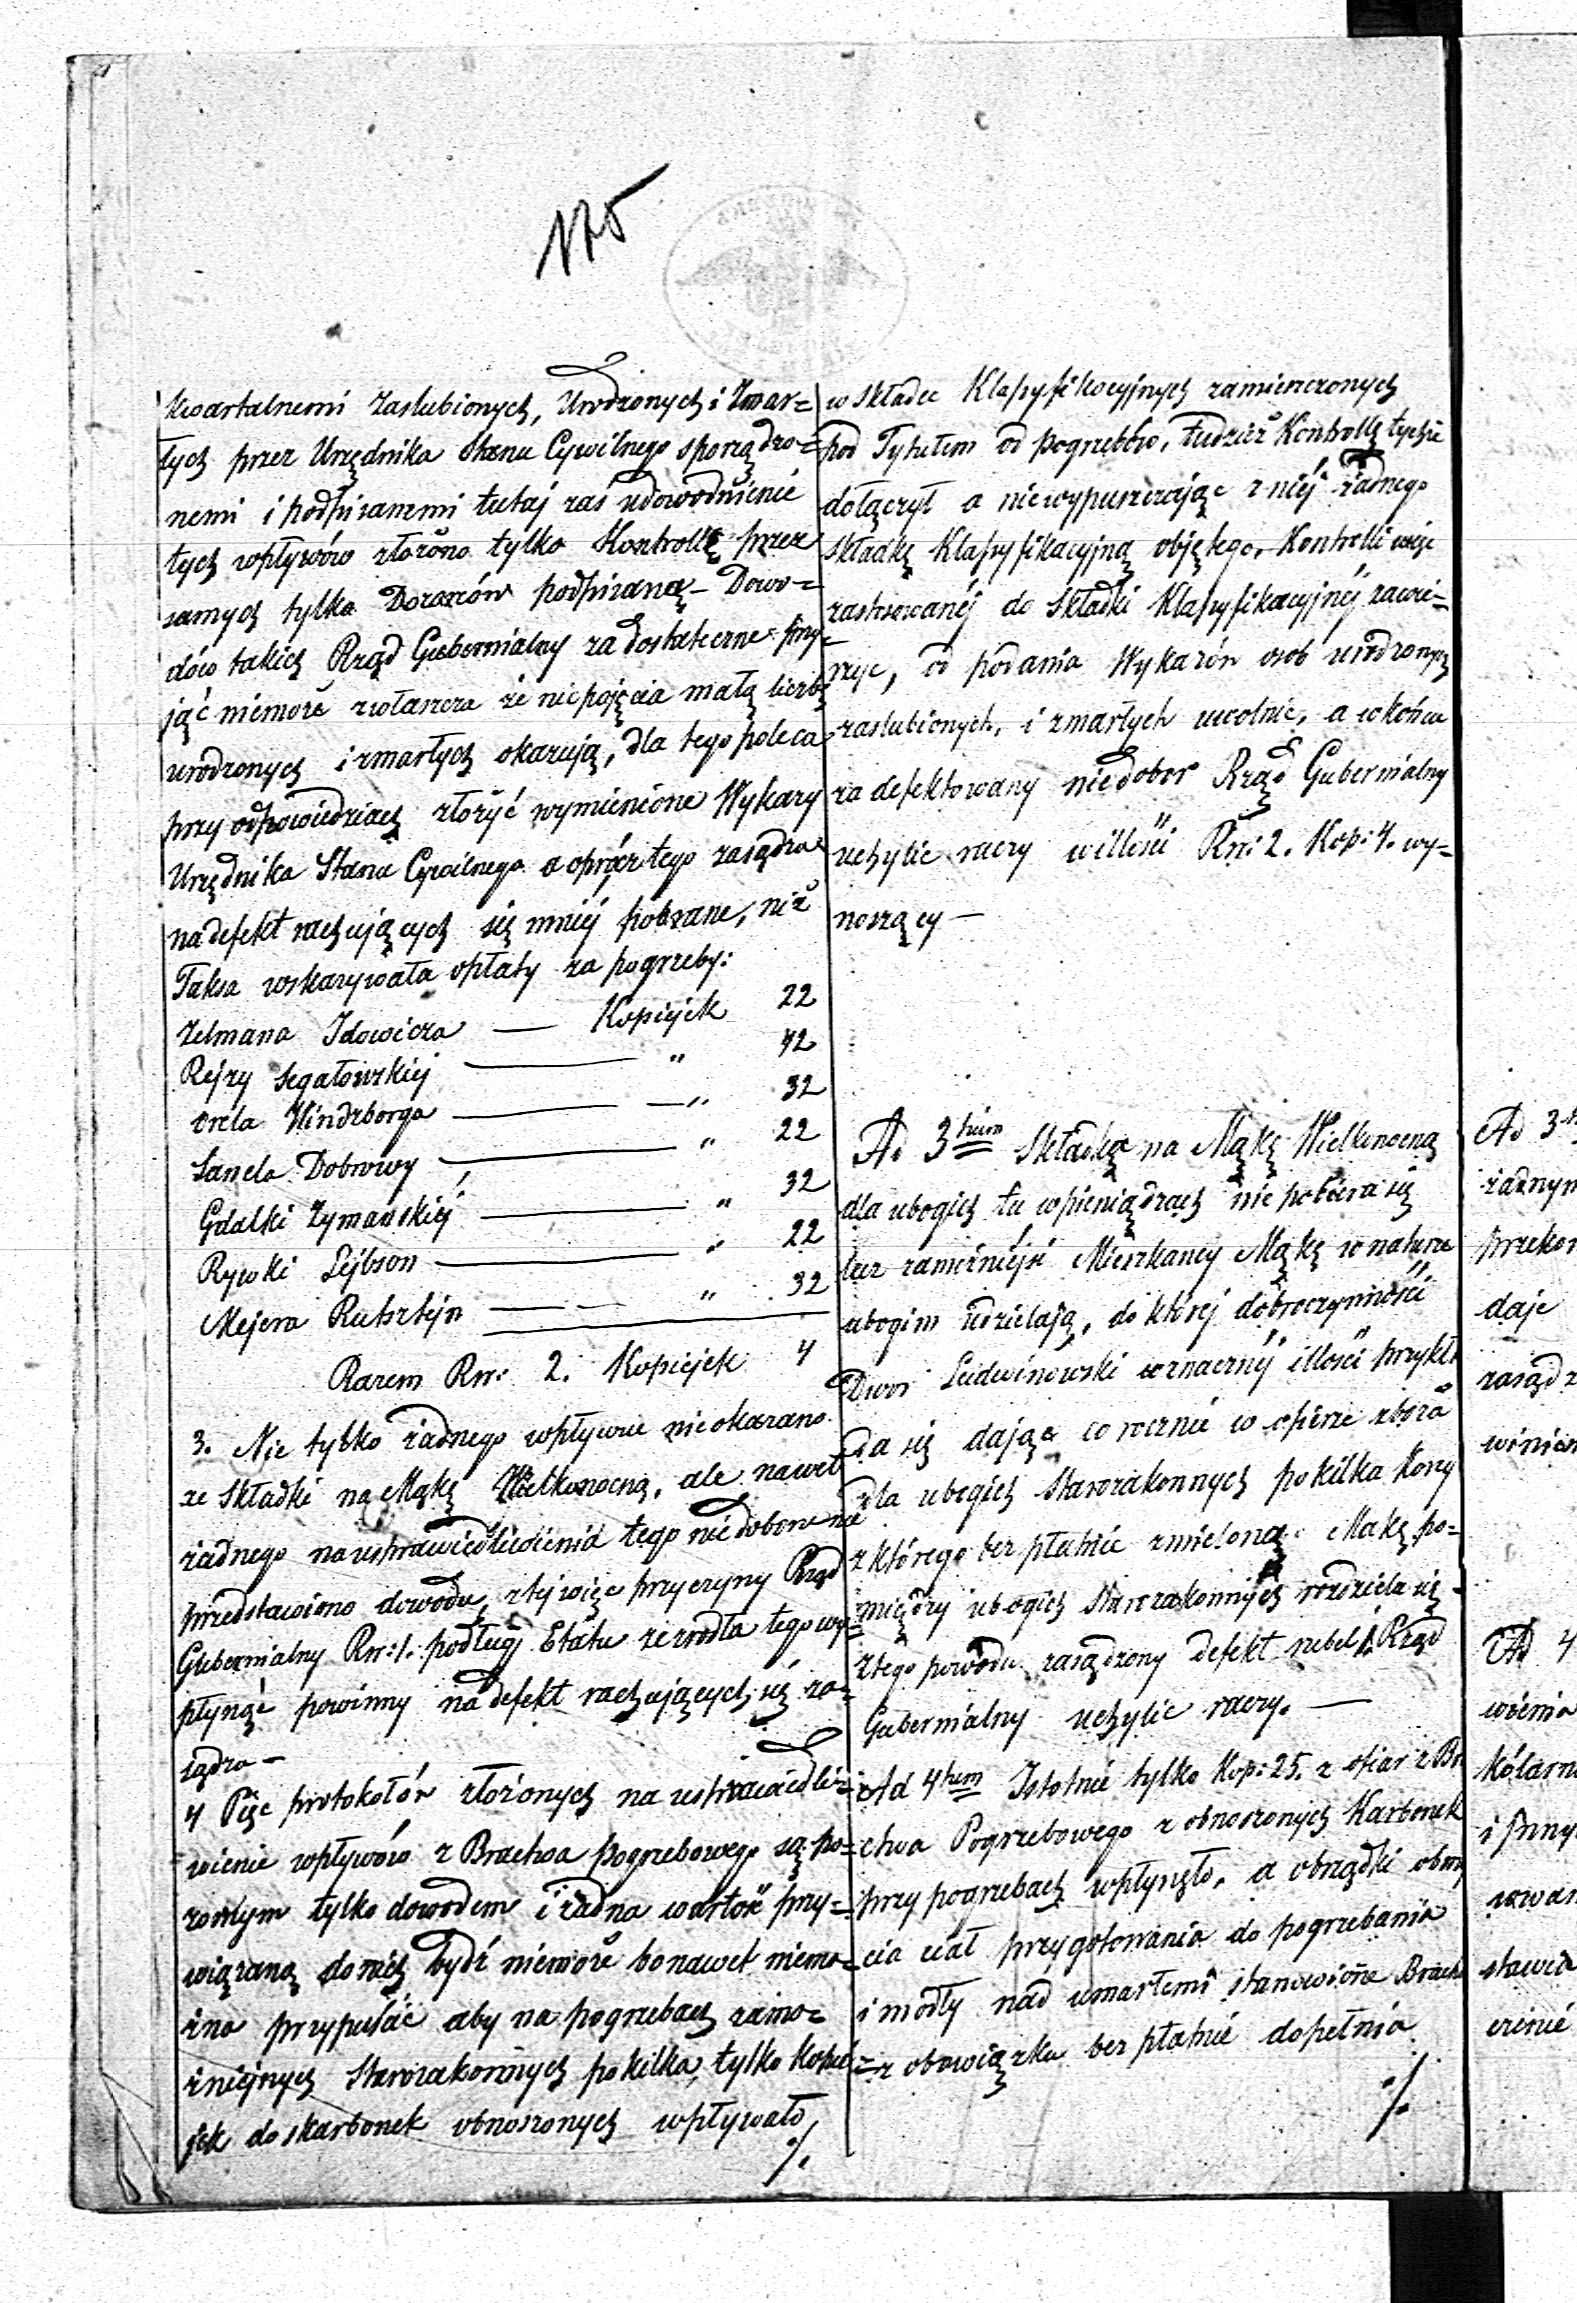 175
kwartalnemi Zaslubionych, Urodzonych i Zmar=
łych przez Urzędnika Stanu Cywilnego sporządzo=
nemi i podpisanemi tutaj zaś udowodnienie
tych wpływów złożono tylko Kontrollę przez
samych tylko Dozorców podpisaną – Dowo=
dów takich Rząd Gubernialny za dostateczne przy=
jąć niemoże zwłaszcza że niepojęcia małą liczbę
urodzonych i zmarłych okazują, dla tego poleca
przy odpowiedziach złożyć wymienione Wykazy
Urzędnika Stanu Cywilnego a oprócz tego zasądza
na defekt rachujących się mniej pobrane, niż
Taksa wskazywała opłaty za pogrzeby:
Zelmana Idowicza — Kopiejek 22
Rejzy Segałowskiej — " 42
Orela Windzberga — " 32
Sanela Dobrowy — " 22
Gdalki Zymańskiej — " 32
Rywki Lejbson — " 22
Mejera Rutsztejn — " 32
Razem Rsr: 2. Kopiejek 4
3. Nie tylko żadnego wpływu nie okazano
ze Składki na Mąkę Wielkonocną, ale nawet
żadnego na usprawiedliwienie tego niedoboru nie
przedstawiono dowodu, z tej więc przyczyny Rząd
Gubernialny Rsr: 1. podług Etatu ze źrodła tego wy=
płynąć powinny na defekt rachujących się za=
sądza –
4 Pięc protokołów złożonych na usprawiedli=
wienie wpływów z Bractwa pogrzebowego są po=
zornym tylko dowodem i żadna wartość przy=
wiązaną do nich bydź niemoże bo nawet niemo=
żna przypuśáć aby na pogrzebach zamo=
żniejszych Starozakonnych po kilka tylko kopie
jek do skarbonek obnoszonych wpływało
./.
w składce Klassyfikacyjnych zamieszczonych
pod Tytułem od pogrzebów, tudzież Kontrollę tychże
dołączył a niewypuszczając z niéj żadnego
składką Klassyfikacyjną objętego, Kontrolli więc
zastosowanéj do Składki Klassyfikacyjnéj zawie=
rzyc, od podania Wykazów osob urodzonych
zaslubionych, i zmarłych uwolnic, a w końcu
zadefektowany niedobor Rząd Gubernialny
uchylic raczy w illości Rsr: 2. Kop: 4. wy=
noszący –
Ad 3tium Składka na Mąkę Wielkonocną
dla ubogich tu w pieniądzach nie pobiera się
lecz zamożniejsi Mieszkancy Mąkę w naturze
ubogim udzielają, do której dobroczynności
Dwor Ludwinowski w znacznéj illości przykła
da się dając corocznie w ofierze zboża
dla ubogich Starozakonnych po kilka Korcy
z którego bez płatnie zmieloną Mąkę po=
między ubogich Starozakonnych rozdziela się
Z tego powodu zasądzony defekt rubel 1. Rząd
Gubernialny uchylic raczy. —
Ad 4tum Istotnie tylko Kop: 25. z ofiar z Bra
ctwa Pogrzebowego z obnoszonych Karbonek
przy pogrzebach wpłynęło, a obrządki obmy
cia ciał przygotowania do pogrzebania
i modły nad umarłemi stanowione Bractw
=z obowiązku bez płatnie dopełnia
./.
Ad 3
żadnym
przekon
daje
zasądz
winien
Ad 4
wienia
kólarn
i przy
stawia
czenie